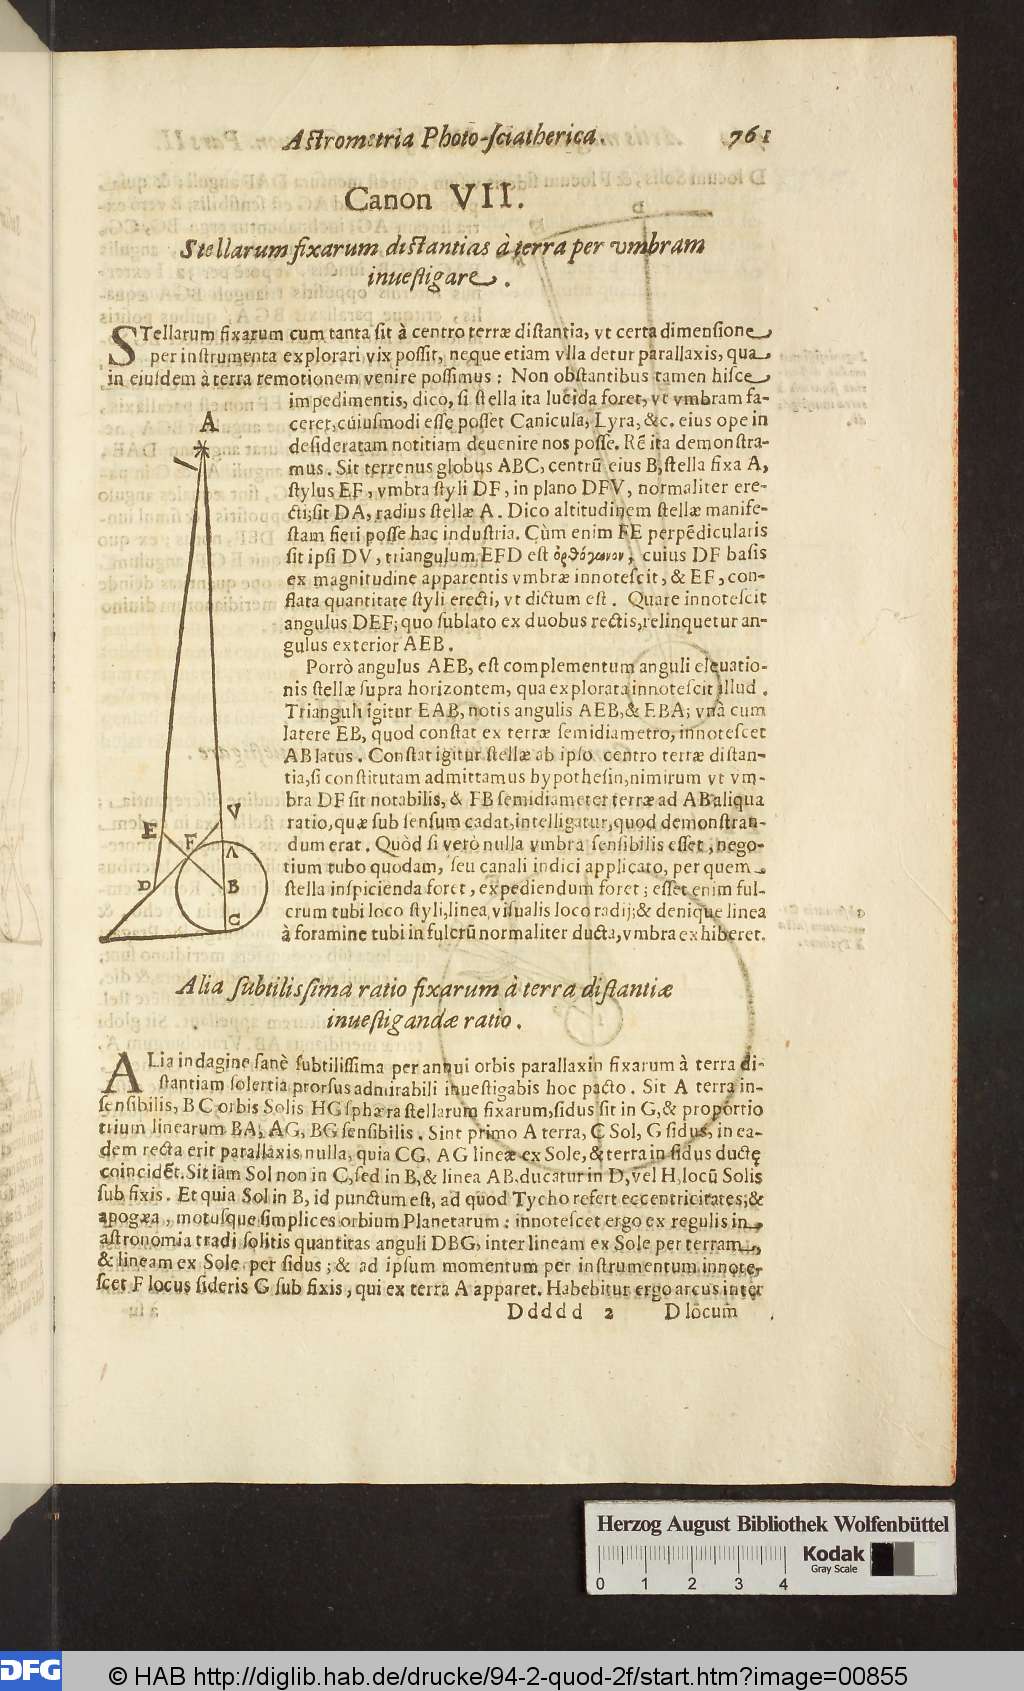 Astrometria Photo-sciatherica. 761
Canon VII.
Stellarum fixarum distantias à terra per vmbram
inuestigare.
STellarum fixarum cum tanta sit à centro terræ distantia, vt certa dimensione
per instrumenta explorari vix possit, neque etiam vlla detur parallaxis, qua
in eiusdem à terra remotionem venire possimus: Non obstantibus tamen hisce
impedimentis, dico, si stella ita lucida foret, vt vmbram fa-
ceret, cuiusmodi esse posset Canicula, Lyra, &c. eius ope in
desideratam notitiam deuenire nos posse. Rẽ ita demonstra-
mus. Sit terrenus globus ABC, centrũ eius B, stella fixa A,
stylus EF, vmbra styli DF, in plano DFV, normaliter ere-
cti; sit DA, radius stellæ A. Dico altitudinem stellæ manife-
stam fieri posse hac industria. Cùm enim FE perpẽdicularis
sit ipsi DV, triangulum EFD est ὀρθόγωνον, cuius DF basis
ex magnitudine apparentis vmbræ innotescit, & EF, con-
flata quantitate styli erecti, vt dictum est. Quare innotescit
angulus DEF; quo sublato ex duobus rectis, relinquetur an-
gulus exterior AEB.
Porrò angulus AEB, est complementum anguli eleuatio-
nis stellæ supra horizontem, qua explorata innotescit illud.
Trianguli igitur EAB, notis angulis AEB, & EBA; vnà cum
latere EB, quod constat ex terræ semidiametro, innotescet
AB latus. Constat igitur stellæ ab ipso centro terræ distan-
tia, si constitutam admittamus hypothesin, nimirum vt vm-
bra DF sit notabilis, & FB semidiameter terræ ad AB aliqua
ratio, quæ sub sensum cadat, intelligatur, quod demonstran-
dum erat. Quòd si verò nulla vmbra sensibilis esset, nego-
tium tubo quodam, seu canali indici applicato, per quem
stella inspicienda foret, expediendum foret; esset enim ful-
crum tubi loco styli, linea visualis loco radij; & denique linea
à foramine tubi in fulcrũ normaliter ducta, vmbra exhiberet.
A
E
F
V
A
D
B
C
Alia subtilissima ratio fixarum à terra distantiæ
inuestigandæ ratio.
ALia indagine sanè subtilissima per annui orbis parallaxin fixarum à terra di-
stantiam solertia prorsus admirabili inuestigabis hoc pacto. Sit A terra in-
sensibilis, BC orbis Solis HG sphæra stellarum fixarum, sidus sit in G, & proportio
trium linearum BA, AG, BG sensibilis. Sint primo A terra, C Sol, G sidus, in ea-
dem recta erit parallaxis nulla, quia CG, AG lineæ ex Sole, & terra in sidus ductę
coincidẽt. Sit iam Sol non in C, sed in B, & linea AB ducatur in D, vel H, locũ Solis
sub fixis. Et quia Sol in B, id punctum est, ad quod Tycho refert eccentricitates; &
apogæa, motusque simplices orbium Planetarum: innotescet ergo ex regulis in
astronomia tradi solitis quantitas anguli DBG, inter lineam ex Sole per terram,
& lineam ex Sole per sidus; & ad ipsum momentum per instrumentum innote-
scet F locus sideris G sub fixis, qui ex terra A apparet. Habebitur ergo arcus inter
Ddddd 2 D locum
Herzog August Bibliothek Wolfenbüttel
Kodak
Gray Scale
0 1 2 3 4
DFG © HAB http://diglib.hab.de/drucke/94-2-quod-2f/start.htm?image=00855